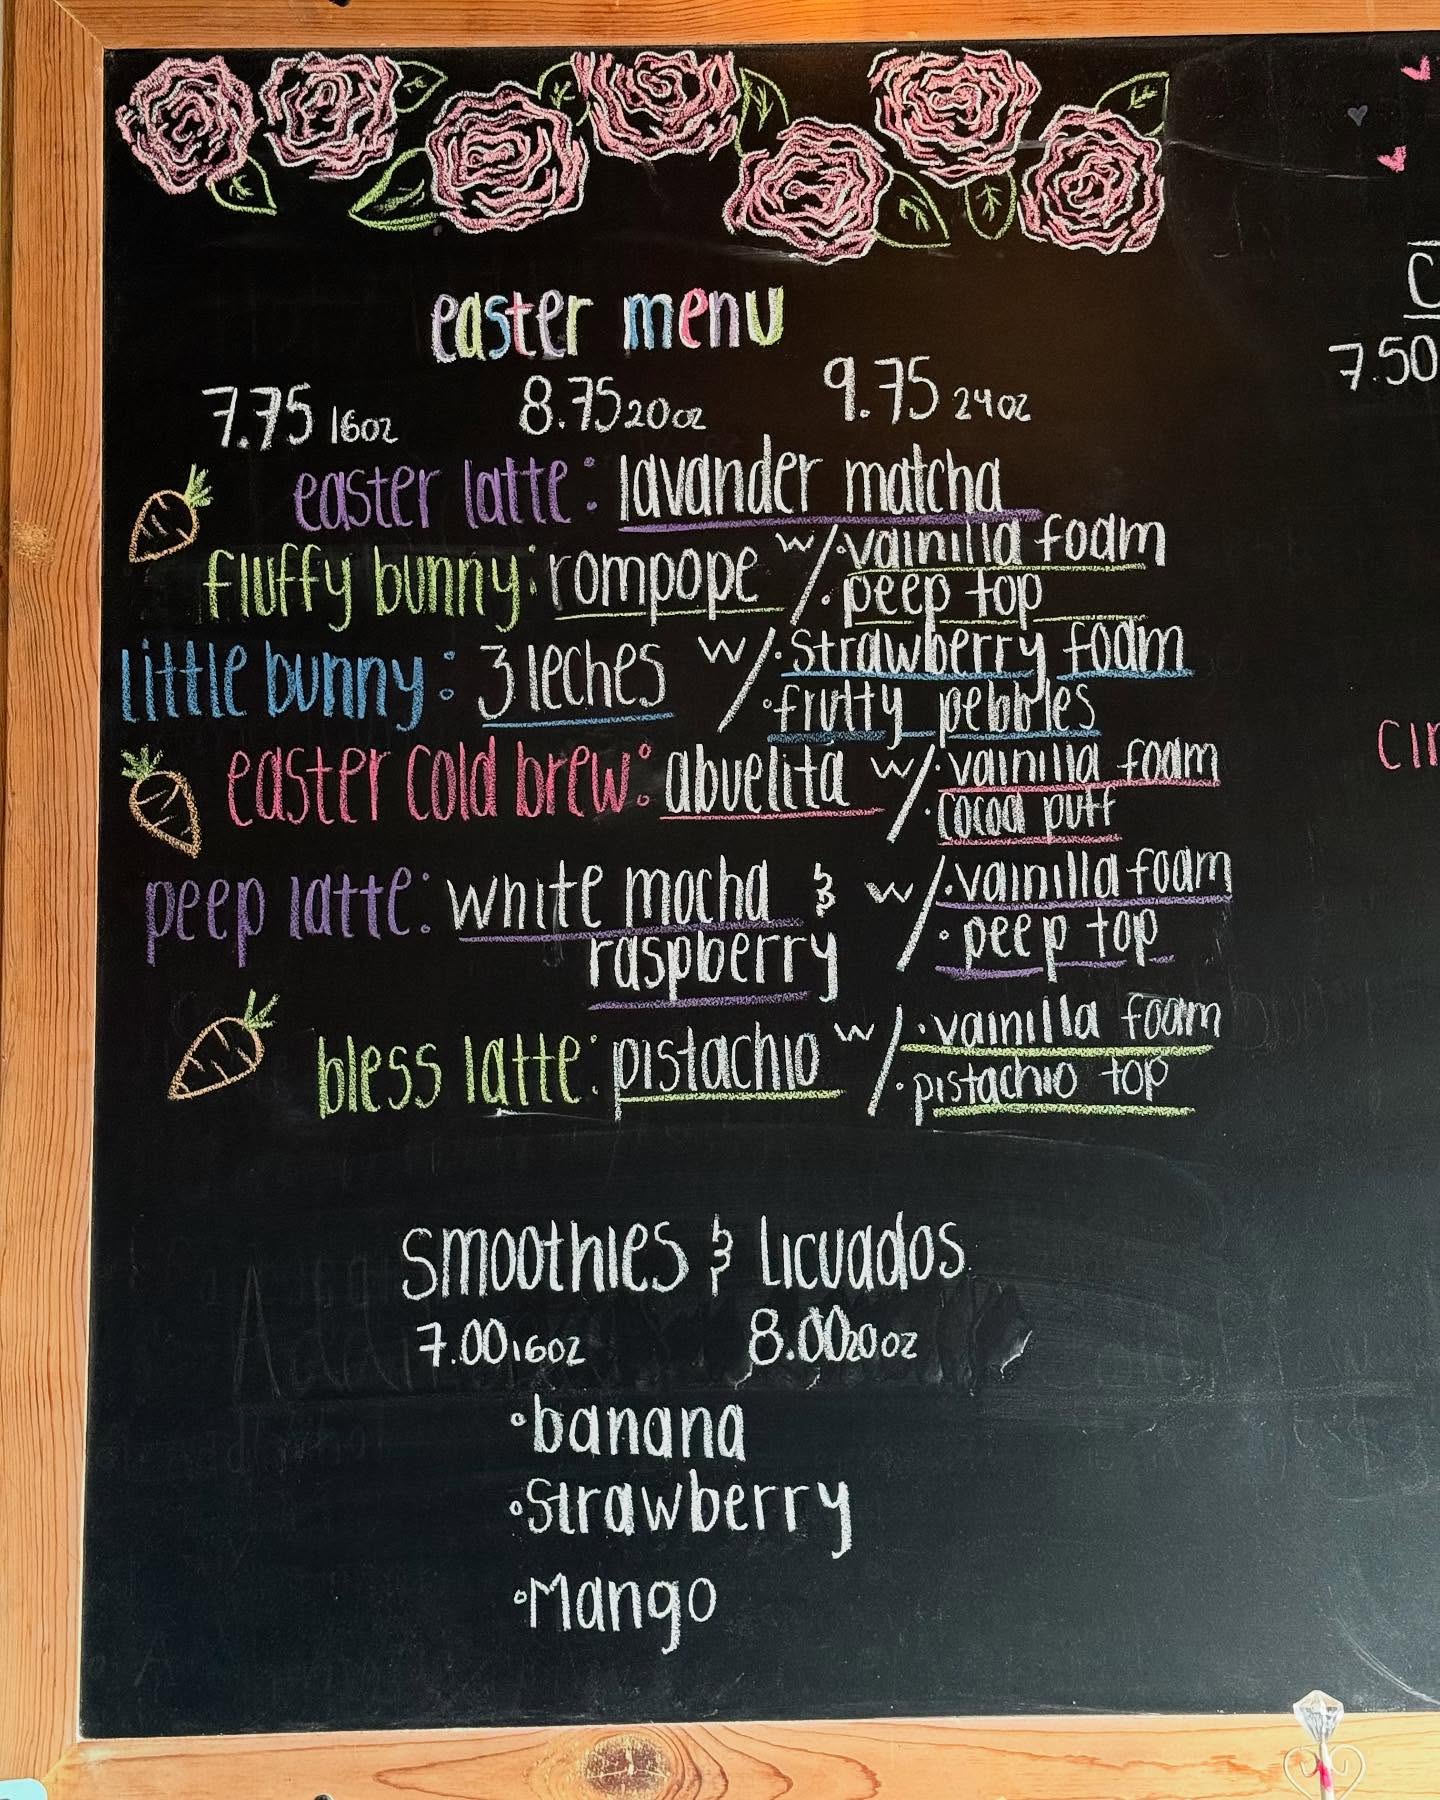 easter menu
7.75 16oz 8.75 20oz 9.75 24oz
easter latte: lavander matcha
fluffy bunny: rompope w/ · vainilla foam
· peep top
little bunny: 3 leches w/ · strawberry foam
· fruity pebbles
easter cold brew: abuelita w/ · vainilla foam
· cocoa puff
peep latte: white mocha & w/ · vainilla foam
raspberry · peep top
bless latte: pistachio w/ · vainilla foam
· pistachio top
smoothies & licuados
7.00 16oz 8.00 20oz
· banana
· strawberry
· Mango
7.50